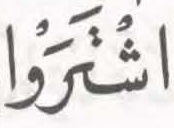 اشْتَرَوْا